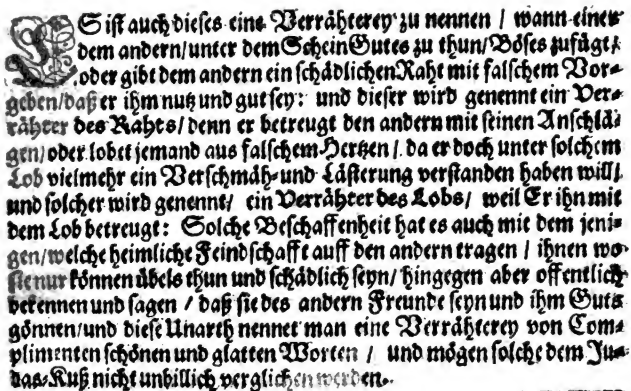 ES ist auch dieses eine Verrähterey zu nennen / wann einer
dem andern / unter dem Schein Gutes zu thun / Böses zufügt /
oder gibt dem andern ein schädlichen Raht mit falschem Vor-
geben / daß er ihm nutz und gut sey: und dieser wird genennt ein Ver-
rähter des Rahts / denn er betreugt den andern mit seinen Anschlä-
gen / oder lobet jemand aus falschem Hertzen / da er doch unter solchem
Lob vielmehr ein Verschmäh- und Lästerung verstanden haben will /
und solcher wird genennt / ein Verrähter des Lobs / weil Er ihn mit
dem Lob betreugt: Solche Beschaffenheit hat es auch mit dem jeni-
gen / welche heimliche Feindschafft auff den andern tragen / ihnen wo
sie nur können übels thun und schädlich seyn / hingegen aber offentlich
bekennen und sagen / daß sie des andern Freunde seyn und ihm Guts
gönnen / und diese Unarth nennet man eine Verrähterey von Com-
plimenten schönen und glatten Worten / und mögen solche dem Ju-
das-Kuß nicht unbillich verglichen werden.